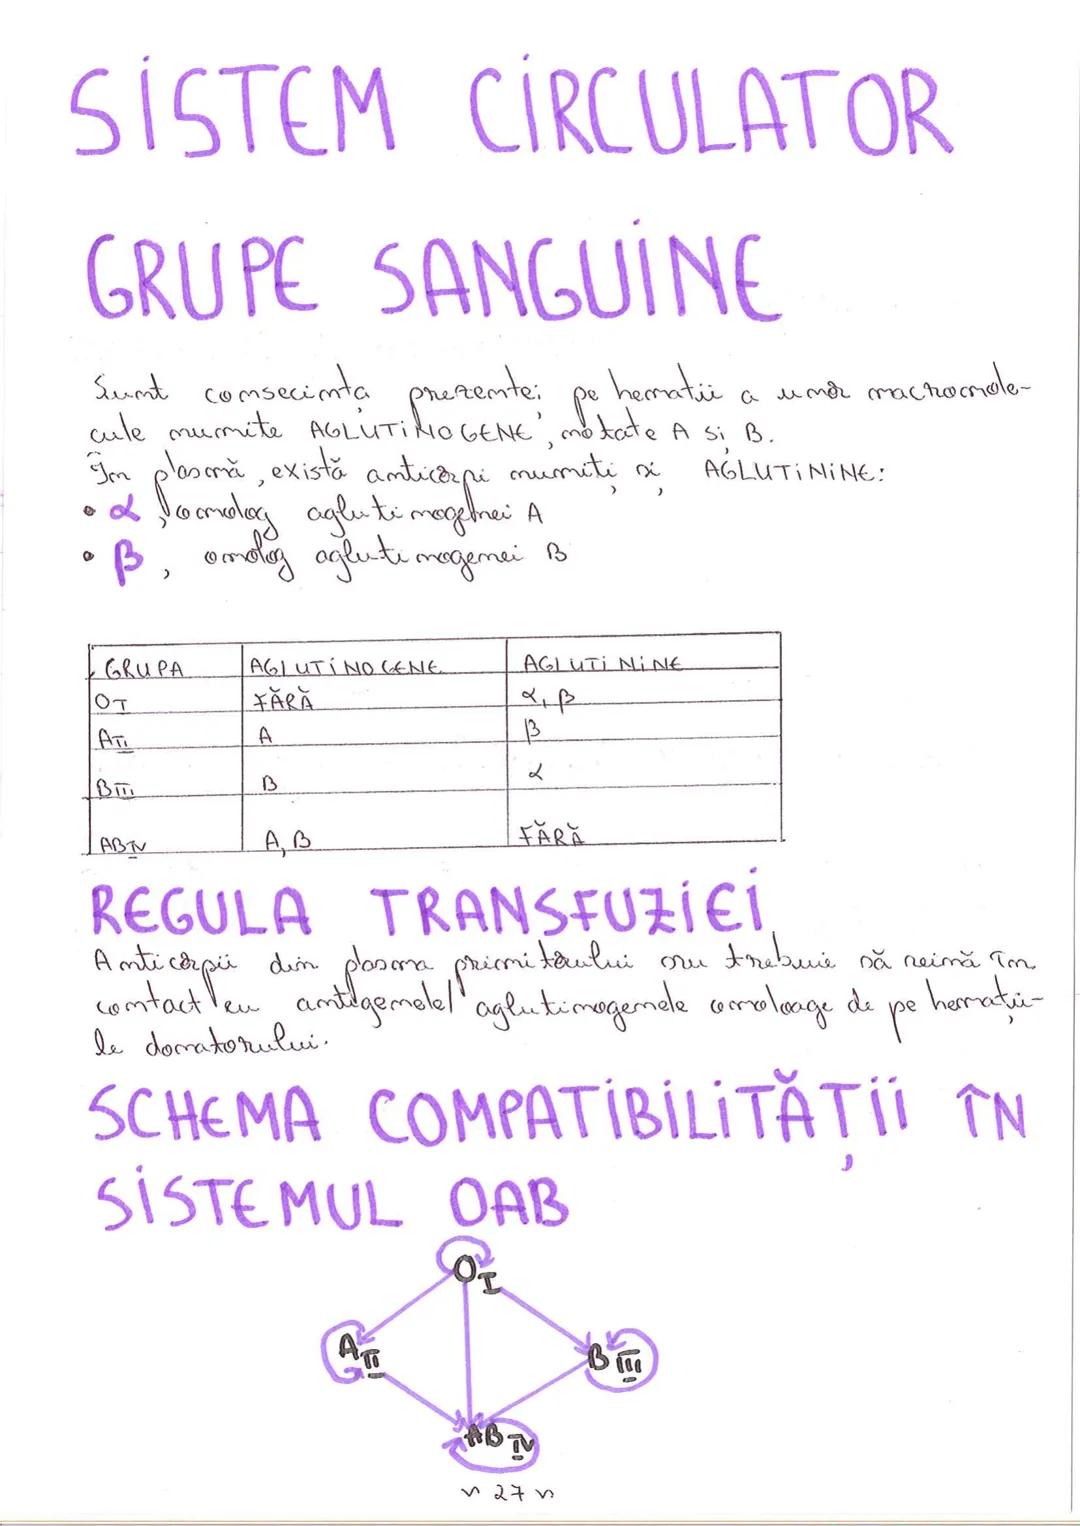 SİSTEM CİRCULATOR
GRUPE SANGUİNE
Sunt consecința prezenței pe hematii a unor macromole-
cule numite AGLUTİNOGENE, notate A și B.
În plasmă, există anticorpi numiți și AGLUTİNİNE:
• α, omolog aglutinogenei A
• β, omolog aglutinogenei B
GRUPA AGLUTİNOGENE AGLUTİNİNE
OI FĂRĂ α, β
AII A β
BIII B α
ABIV A, B FĂRĂ
REGULA TRANSFUZİEİ
Anticorpii din plasma primitorului nu trebuie să reină în
contact cu antigenele/ aglutinogenele omoloage de pe hematii-
le donatorului.
SCHEMA COMPATİBİLİTĂȚİİ ÎN
SİSTEMUL OAB
OI
AII
BIII
ABIV
~ 27 ~